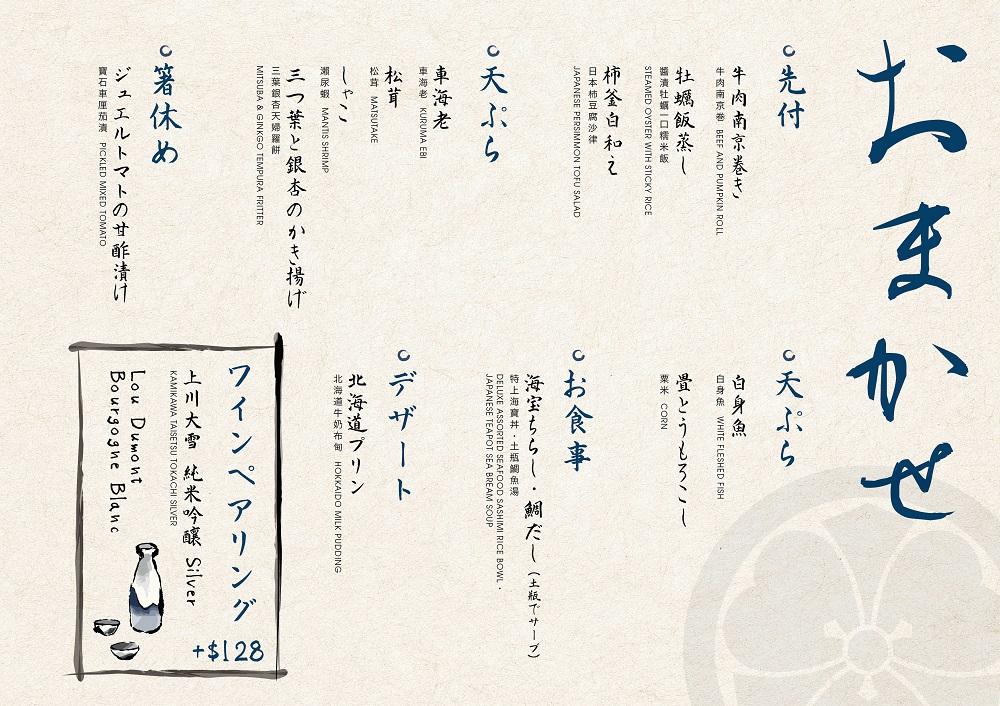 おまかせ
先付
牛肉南京巻き
牛肉南京巻 BEEF AND PUMPKIN ROLL
牡蠣飯蒸し
醬漬牡蠣一口糯米飯
STEAMED OYSTER WITH STICKY RICE
柿釜白和え
日本柿豆腐沙律
JAPANESE PERSIMMON TOFU SALAD
天ぷら
車海老
車海老 KURUMA EBI
松茸
松茸 MATSUTAKE
しゃこ
瀨尿蝦 MANTIS SHRIMP
三つ葉と銀杏のかき揚げ
三葉銀杏天婦羅餅
MITSUBA & GINKGO TEMPURA FRITTER
箸休め
ジュエルトマトの甘酢漬け
寶石車厘茄漬 PICKLED MIXED TOMATO
天ぷら
白身魚
白身魚 WHITE FLESHED FISH
畳とうもろこし
粟米 CORN
お食事
海宝ちらし・鯛だし（土瓶でサーブ）
特上海寶丼・土瓶鯛魚湯
DELUXE ASSORTED SEAFOOD SASHIMI RICE BOWL・
JAPANESE TEAPOT SEA BREAM SOUP
デザート
北海道プリン
北海道牛奶布甸 HOKKAIDO MILK PUDDING
ワインペアリング
上川大雪 純米吟釀 Silver
KAMIKAWA TAISETSU TOKACHI SILVER
Lou Dumont
Bourgogne Blanc
+$128